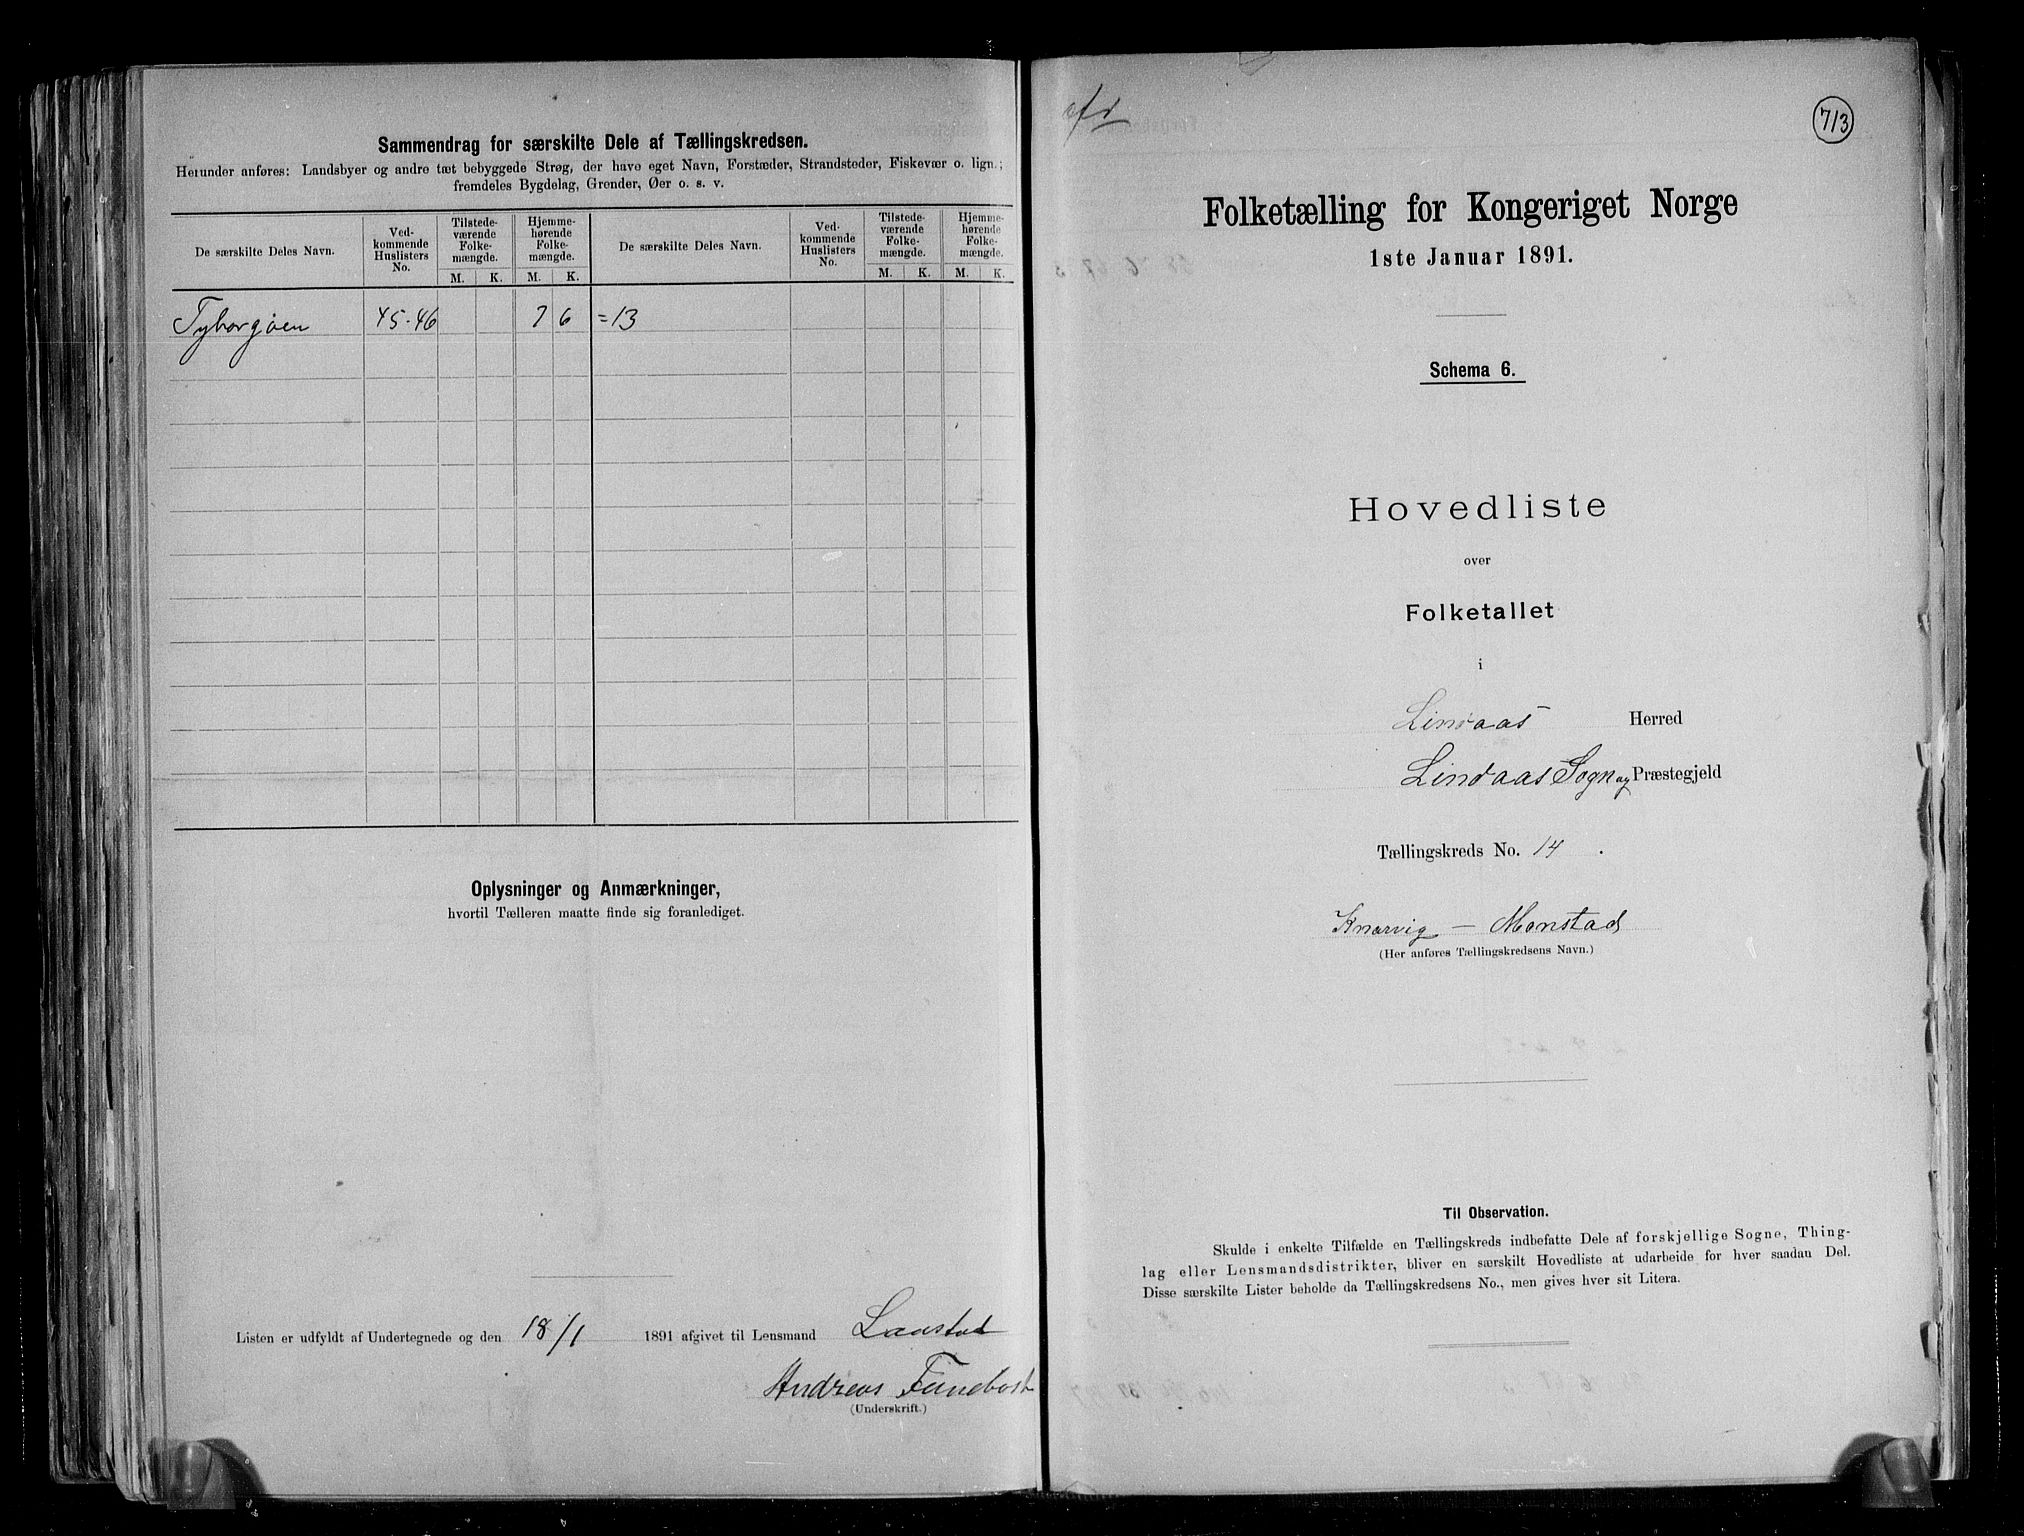 Sammendrag for særskilte Dele af Tællingskredsen.
Herunder anføres: Landsbyer og andre tæt bebyggede Strøg, der have eget Navn, Forstæder, Strandsteder, Fiskevær o. lign.;
fremdeles Bygdelag, Grender, Øer o. s. v.
De særskilte Deles Navn.
Ved-
kommende
Huslisters
No.
Tilstede-
værende
Folke-
mængde.
M. K.
Hjemme-
hørende
Folke-
mængde.
M. K.
De særskilte Deles Navn.
Ved-
kommende
Huslisters
No.
Tilstede-
værende
Folke-
mængde.
M. K.
Hjemme-
hørende
Folke-
mængde.
M. K.
45-46 7 6 =13
Oplysninger og Anmærkninger,
hvortil Tælleren maatte finde sig foranlediget.
Listen er udfyldt af Undertegnede og den 18/1 1891 afgivet til Lensmand
Andreas
(Underskrift.)
713
Folketælling for Kongeriget Norge
1ste Januar 1891.
Schema 6.
Hovedliste
over
Folketallet
i
Lindaas Herred
Lindaas Sogn og Præstegjeld
Tællingskreds No. 14.
Knarvig — Monstad
(Her anføres Tællingskredsens Navn.)
Til Observation.
Skulde i enkelte Tilfælde en Tællingskreds indbefatte Dele af forskjellige Sogne, Thing-
lag eller Lensmandsdistrikter, bliver en særskilt Hovedliste at udarbeide for hver saadan Del.
Disse særskilte Lister beholde da Tællingskredsens No., men gives hver sit Litera.